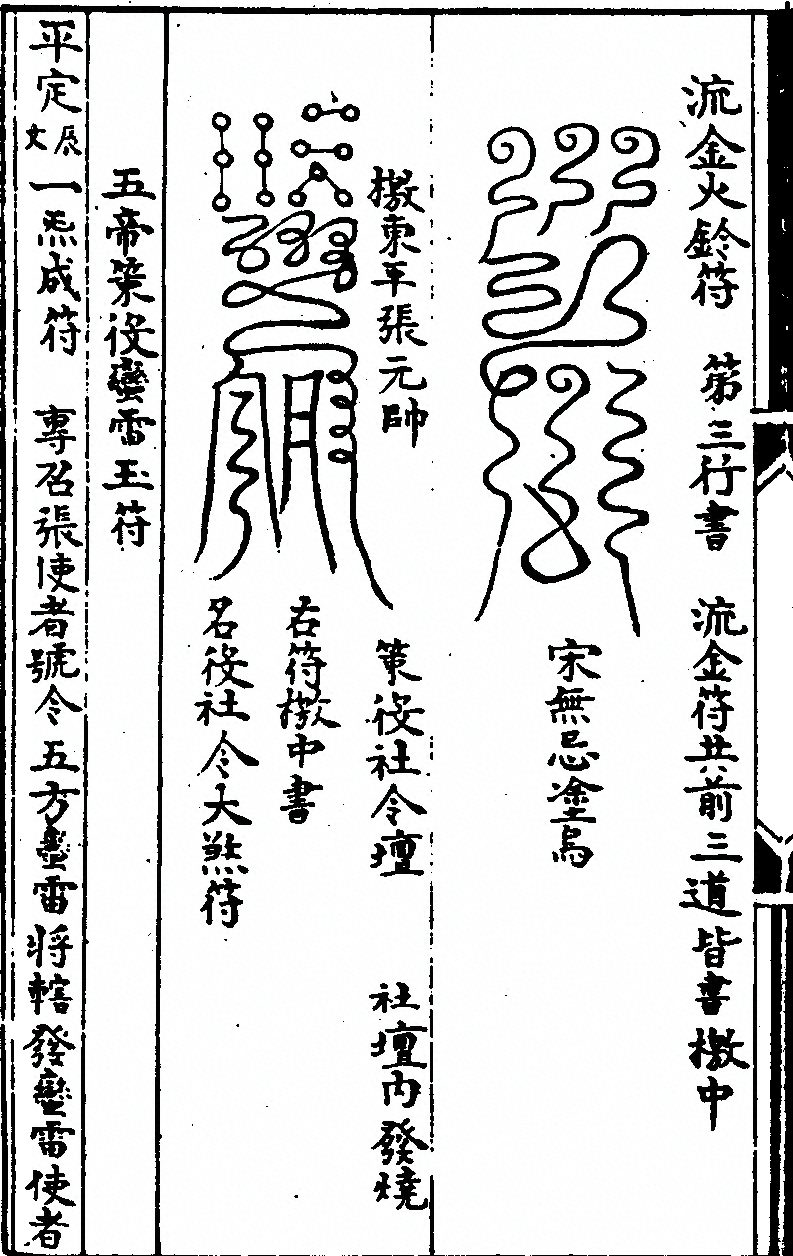 流金火鈴符　第三行書　流金符共前三道皆書檄中
宋無忌塗烏
檄東平張元帥　策役社令壇　社壇內發燒
右符檄中書
名役社令大煞符
五帝策役蠻雷玉符
平定辰文一炁成符　專召張使者號令五方蠻雷將轄發蠻雷使者